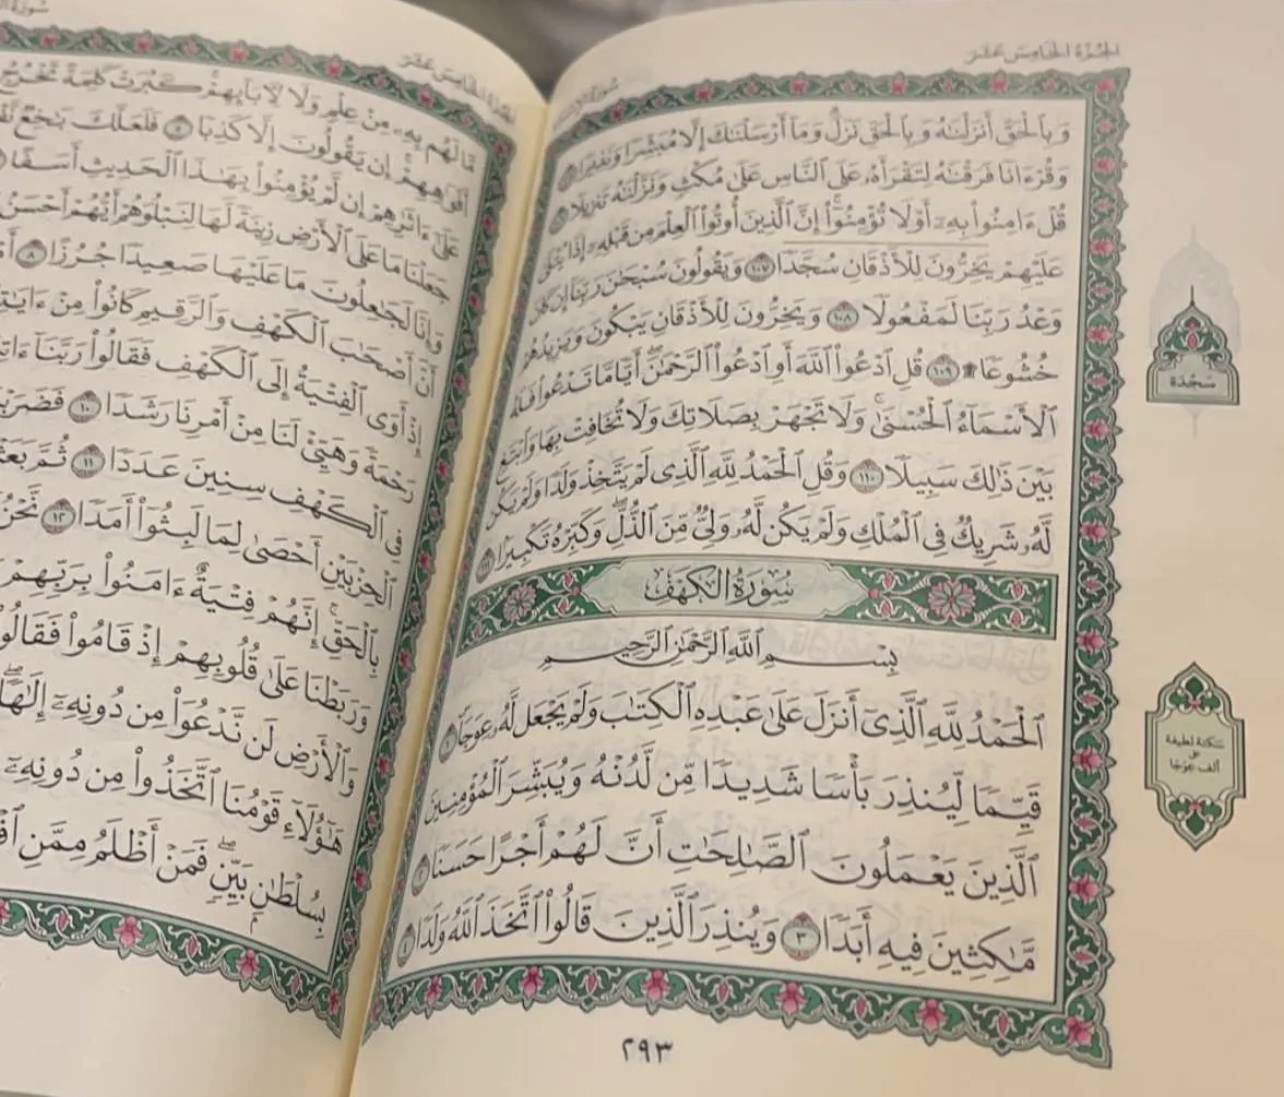 الجزء الخامس عشر
سورة
وَبِٱلْحَقِّ أَنزَلْنَٰهُ وَبِٱلْحَقِّ نَزَلَ وَمَآ أَرْسَلْنَٰكَ إِلَّا مُبَشِّرًا وَنَذِيرًا
وَقُرْءَانًا فَرَقْنَٰهُ لِتَقْرَأَهُۥ عَلَى ٱلنَّاسِ عَلَىٰ مُكْثٍ وَنَزَّلْنَٰهُ تَنزِيلًا
قُلْ ءَامِنُوا۟ بِهِۦٓ أَوْ لَا تُؤْمِنُوٓا۟ إِنَّ ٱلَّذِينَ أُوتُوا۟ ٱلْعِلْمَ مِن قَبْلِهِۦٓ إِذَا يُتْلَىٰ
عَلَيْهِمْ يَخِرُّونَ لِلْأَذْقَانِ سُجَّدًا ١٠٧ وَيَقُولُونَ سُبْحَٰنَ رَبِّنَآ إِن كَانَ
وَعْدُ رَبِّنَا لَمَفْعُولًا ١٠٨ وَيَخِرُّونَ لِلْأَذْقَانِ يَبْكُونَ وَيَزِيدُهُمْ
خُشُوعًا ۩ ١٠٩ قُلِ ٱدْعُوا۟ ٱللَّهَ أَوِ ٱدْعُوا۟ ٱلرَّحْمَٰنَ ۖ أَيًّا مَّا تَدْعُوا۟ فَلَهُ
ٱلْأَسْمَآءُ ٱلْحُسْنَىٰ ۚ وَلَا تَجْهَرْ بِصَلَاتِكَ وَلَا تُخَافِتْ بِهَا وَٱبْتَغِ
بَيْنَ ذَٰلِكَ سَبِيلًا ١١٠ وَقُلِ ٱلْحَمْدُ لِلَّهِ ٱلَّذِى لَمْ يَتَّخِذْ وَلَدًا وَلَمْ يَكُن
لَّهُۥ شَرِيكٌ فِى ٱلْمُلْكِ وَلَمْ يَكُن لَّهُۥ وَلِىٌّ مِّنَ ٱلذُّلِّ ۖ وَكَبِّرْهُ تَكْبِيرًۢا ١١١
سُورَةُ الكَهْفِ
بِسْمِ ٱللَّهِ ٱلرَّحْمَٰنِ ٱلرَّحِيمِ
ٱلْحَمْدُ لِلَّهِ ٱلَّذِىٓ أَنزَلَ عَلَىٰ عَبْدِهِ ٱلْكِتَٰبَ وَلَمْ يَجْعَل لَّهُۥ عِوَجَاۜ ١
قَيِّمًا لِّيُنذِرَ بَأْسًا شَدِيدًا مِّن لَّدُنْهُ وَيُبَشِّرَ ٱلْمُؤْمِنِينَ
ٱلَّذِينَ يَعْمَلُونَ ٱلصَّٰلِحَٰتِ أَنَّ لَهُمْ أَجْرًا حَسَنًا ٢
مَّٰكِثِينَ فِيهِ أَبَدًا ٣ وَيُنذِرَ ٱلَّذِينَ قَالُوا۟ ٱتَّخَذَ ٱللَّهُ وَلَدًا ٤
سَجْدَة
سكتة لطيفة
على
ألف عوجا
٢٩٣
سورة
الجزء الخامس عشر
مَّا لَهُم بِهِۦ مِنْ عِلْمٍ وَلَا لِءَابَآئِهِمْ ۚ كَبُرَتْ كَلِمَةً تَخْرُجُ
أَفْوَٰهِهِمْ ۚ إِن يَقُولُونَ إِلَّا كَذِبًا ٥ فَلَعَلَّكَ بَٰخِعٌ
عَلَىٰٓ ءَاثَٰرِهِمْ إِن لَّمْ يُؤْمِنُوا۟ بِهَٰذَا ٱلْحَدِيثِ أَسَفًا
جَعَلْنَا مَا عَلَى ٱلْأَرْضِ زِينَةً لَّهَا لِنَبْلُوَهُمْ أَيُّهُمْ أَحْسَنُ
وَإِنَّا لَجَٰعِلُونَ مَا عَلَيْهَا صَعِيدًا جُرُزًا ٨
أَنَّ أَصْحَٰبَ ٱلْكَهْفِ وَٱلرَّقِيمِ كَانُوا۟ مِنْ
إِذْ أَوَى ٱلْفِتْيَةُ إِلَى ٱلْكَهْفِ فَقَالُوا۟ رَبَّنَآ
رَحْمَةً وَهَيِّئْ لَنَا مِنْ أَمْرِنَا رَشَدًا ١٠
فِى ٱلْكَهْفِ سِنِينَ عَدَدًا ١١ ثُمَّ
ٱلْحِزْبَيْنِ أَحْصَىٰ لِمَا لَبِثُوٓا۟ أَمَدًا ١٢ نَّحْنُ
بِٱلْحَقِّ ۚ إِنَّهُمْ فِتْيَةٌ ءَامَنُوا۟ بِرَبِّهِمْ
وَرَبَطْنَا عَلَىٰ قُلُوبِهِمْ إِذْ قَامُوا۟ فَقَالُوا۟
وَٱلْأَرْضِ لَن نَّدْعُوَا۟ مِن دُونِهِۦٓ إِلَٰهًا
هَٰٓؤُلَآءِ قَوْمُنَا ٱتَّخَذُوا۟ مِن دُونِهِۦٓ
بِسُلْطَٰنٍۭ بَيِّنٍ ۖ فَمَنْ أَظْلَمُ مِمَّنِ